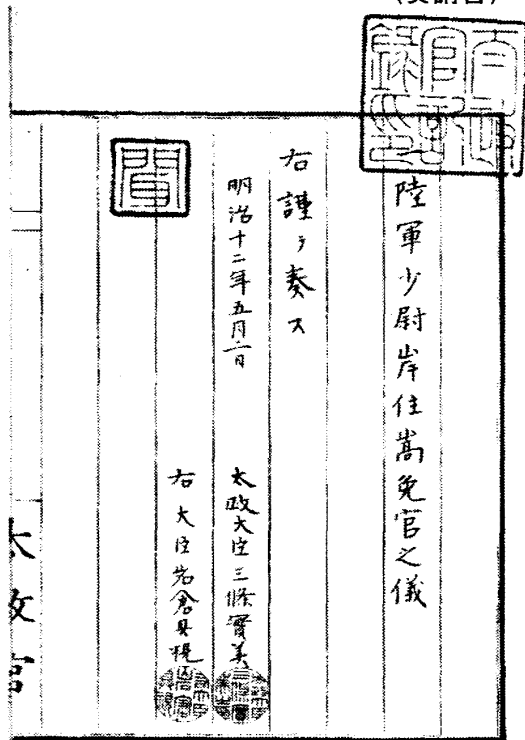 太政官記録之印
陸軍少尉岸住嵩免官之儀
右謹テ奏ス
明治十二年五月二日
太政大臣三條實美
右大臣岩倉具視
聞
太政官